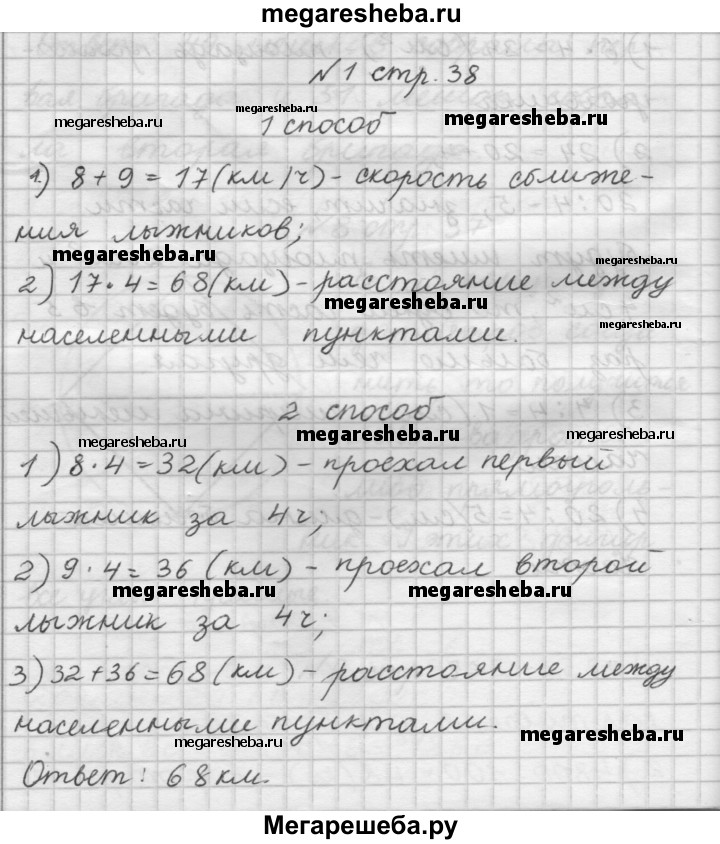 megaresheba.ru
№1 стр. 38
megaresheba.ru megaresheba.ru megaresheba.ru
1 способ
1) 8 + 9 = 17 (км/ч) - скорость сближе-
ния лыжников;
megaresheba.ru megaresheba.ru
2) 17 · 4 = 68 (км) - расстояние между
megaresheba.ru megaresheba.ru
населенными пунктами.
2 способ
megaresheba.ru megaresheba.ru megaresheba.ru
1) 8 · 4 = 32 (км) - проехал первый
лыжник за 4ч;
2) 9 · 4 = 36 (км) - проехал второй
megaresheba.ru megaresheba.ru
лыжник за 4ч;
3) 32 + 36 = 68 (км) - расстояние между
населенными пунктами.
megaresheba.ru megaresheba.ru
Ответ: 68 км.
Мегарешеба.ру